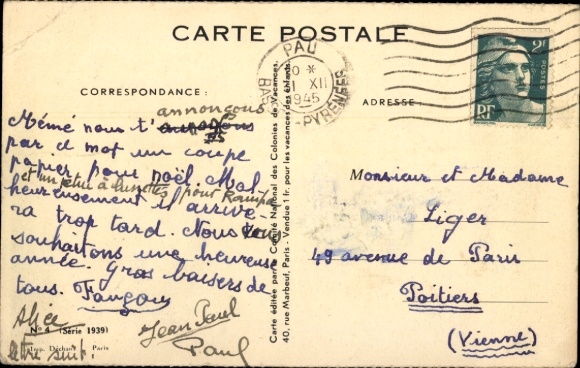 CARTE POSTALE
CORRESPONDANCE :
annonçons
Mémé nous t'
par ce mot un coupe
papier pour noël. Mal
et un étui à lunettes pour
heureusement il arrive-
ra trop tard. Nous vous
souhaitons une heureuse
année. Gros baisers de
tous.
Alice
Jean Paul
Paul
N° 4 (Série 1939)
Imp. Déchaux, Paris
lettre suit.
Carte éditée par le Comité National des Colonies de Vacances,
40, rue Marbeuf, Paris - Vendue 1 fr. pour les vacances des enfants.
PAU
XII
1945
BASSES PYRENEES
2F
POSTES
RF
ADRESSE
Monsieur et Madame
Liger
49 avenue de Paris
Poitiers
(Vienne)